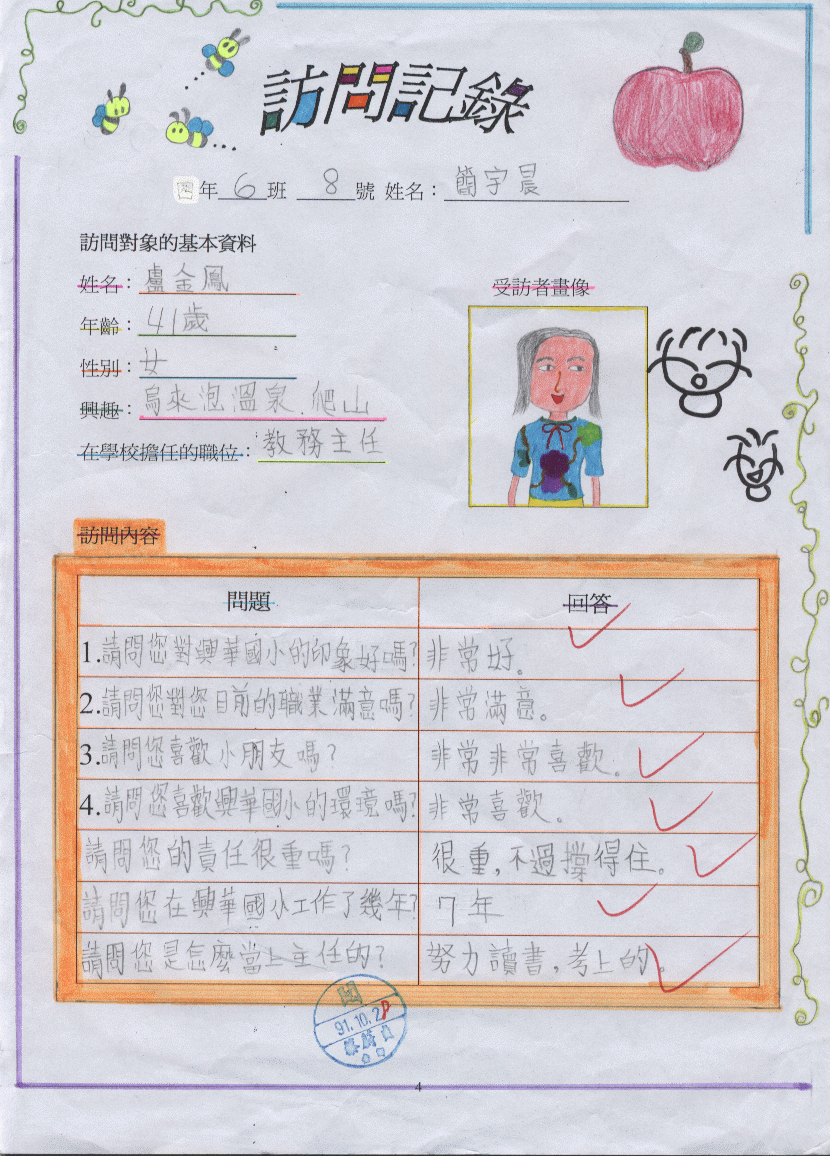 訪問記錄
四年6班 8號 姓名：簡宇晨
訪問對象的基本資料
姓名：盧金鳳
受訪者畫像
年齡：41歲
性別：女
興趣：烏來泡溫泉、爬山
在學校擔任的職位：教務主任
訪問內容
問題 回答
1.請問您對興華國小的印象好嗎? 非常好。
2.請問您對您目前的職業滿意嗎? 非常滿意。
3.請問您喜歡小朋友嗎? 非常非常喜歡。
4.請問您喜歡興華國小的環境嗎? 非常喜歡。
請問您的責任很重嗎? 很重,不過撐得住。
請問您在興華國小工作了幾年? 7年
請問您是怎麼當上主任的? 努力讀書,考上的。
91.10.2
4